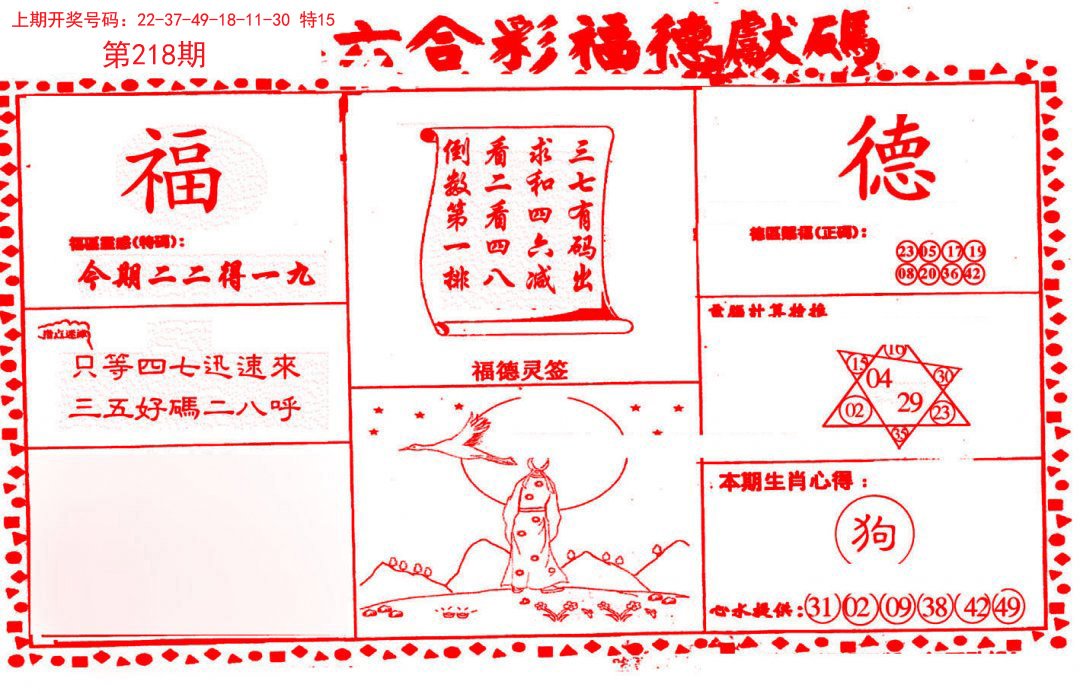 上期开奖号码：22-37-49-18-11-30 特15
第218期
六合彩福德獻碼
福
福區靈感(特碼)：
今期二二得一九
指点迷津
只等四七迅速來
三五好碼二八呼
三七有码出
求和四六减
看二看四八
倒数第一排
福德灵签
德
德區賜福(正碼)：
23 05 17 19
08 20 36 42
電腦計算檢推
15 16 30
04
02 29 23
35
本期生肖心得：
狗
心水提供：31 02 09 38 42 49